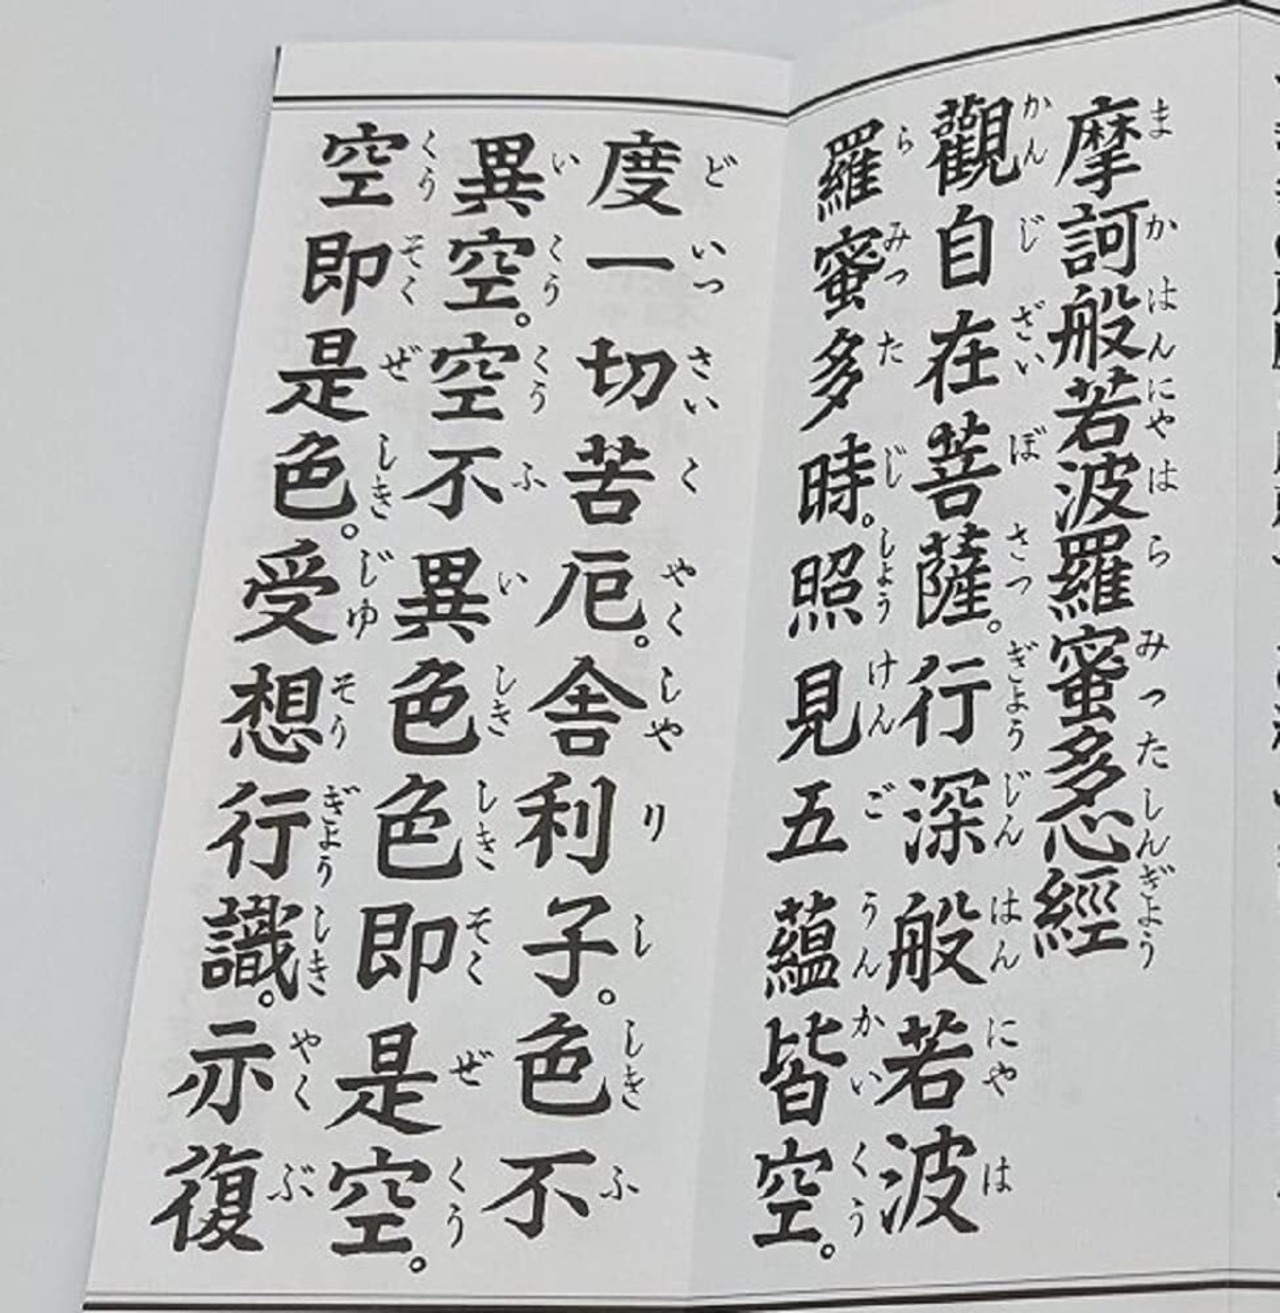 摩訶般若波羅蜜多心經
まかはんにやはらみつたしんぎよう
觀自在菩薩。行深般若波
かんじざいぼさつぎようじんはんにやは
羅蜜多時。照見五蘊皆空。
らみつたじしようけんごうんかいくう
度一切苦厄。舎利子。色不
どいつさいくやくしやりししきふ
異空。空不異色色即是空。
いくうくうふいしきしきそくぜくう
空即是色。受想行識。亦復
くうそくぜしきじゆそうぎようしきやくぶ